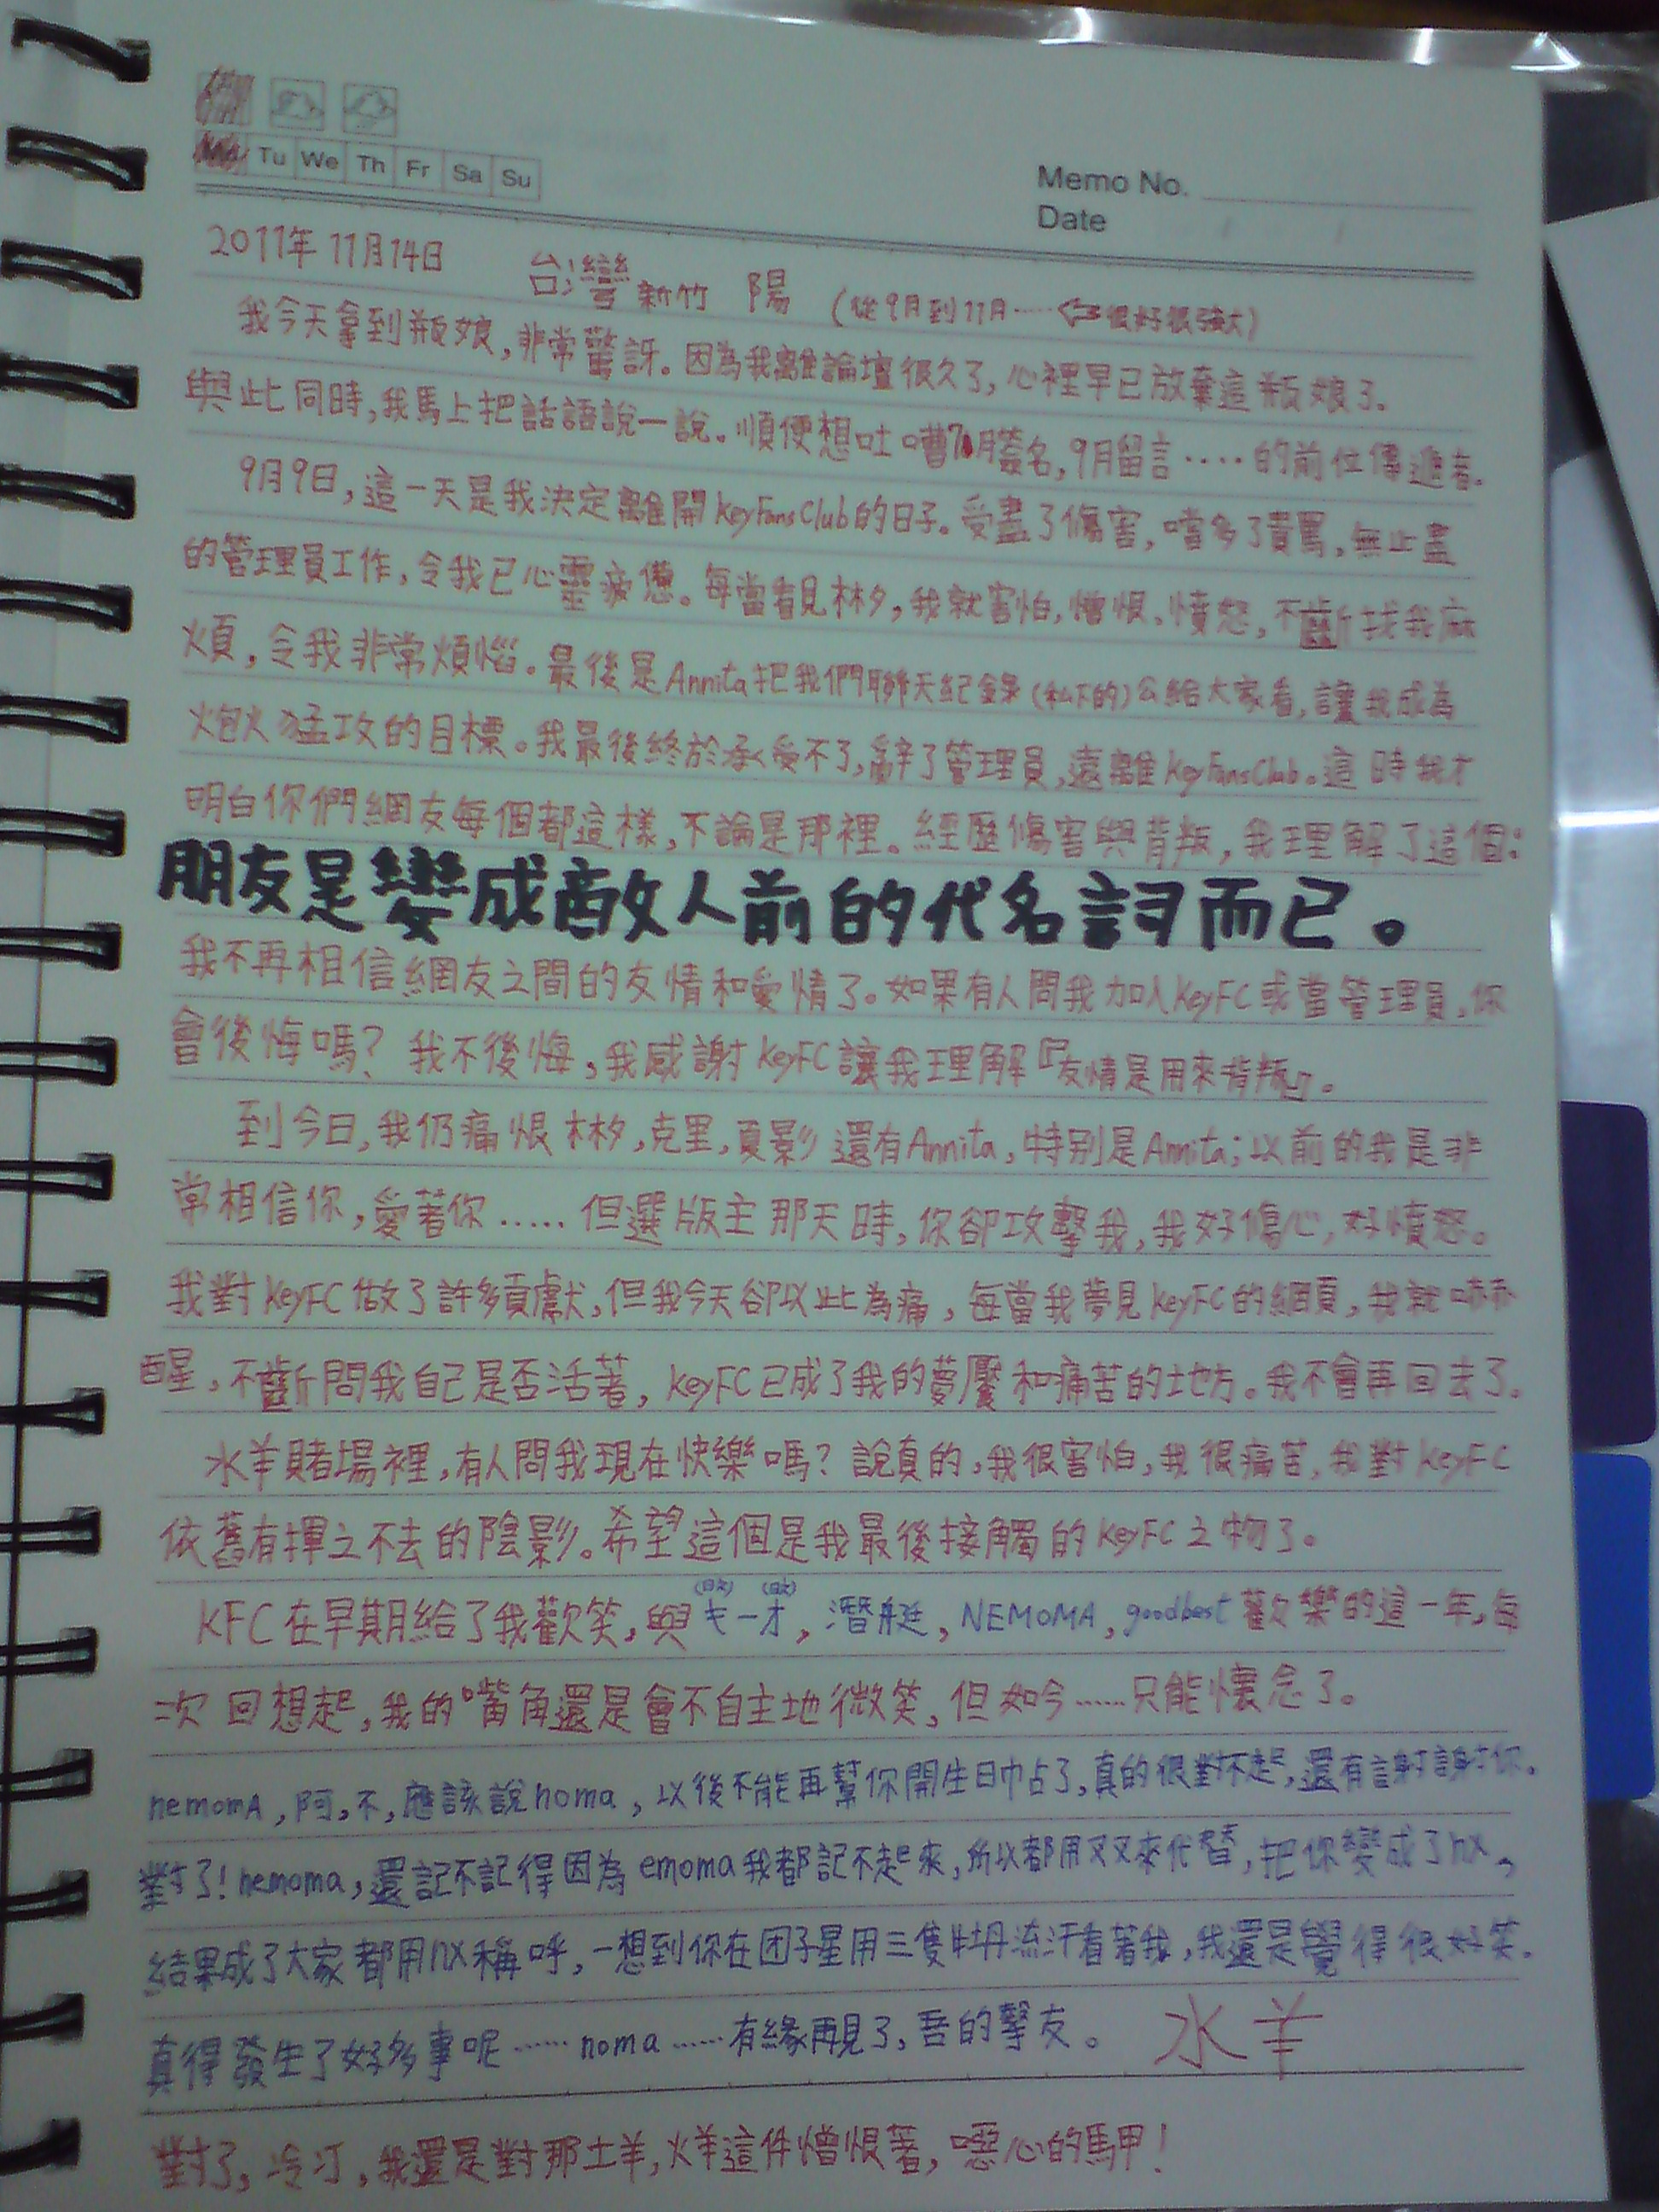 Mo Tu We Th Fr Sa Su
Memo No.
Date
2011年11月14日 台灣新竹 陽 (從9月到11月……⇦很好很強大)
我今天拿到瓶娘,非常驚訝。因為我離論壇很久了,心裡早已放棄這瓶娘了。
與此同時,我馬上把話語說一說。順便想吐嘈7月簽名,9月留言‥‥的前位傳遞者。
9月9日,這一天是我決定離開KeyFansClub的日子。受盡了傷害,嚐多了責罵,無止盡
的管理員工作,令我已心靈疲憊。每當看見林夕,我就害怕,憎恨、憤怒,不斷找我麻
煩,令我非常煩惱。最後是Annita把我們聊天紀錄(私下的)公給大家看,讓我成為
炮火猛攻的目標。我最後終於承受不了,辭了管理員,遠離KeyFansClub。這時我才
明白你們網友每個都這樣,不論是那裡。經歷傷害與背叛,我理解了這個:
朋友是變成敵人前的代名詞而已。
我不再相信網友之間的友情和愛情了。如果有人問我加入KeyFC或當管理員,你
會後悔嗎?我不後悔,我感謝KeyFC讓我理解『友情是用來背叛』。
到今日,我仍痛恨林夕,克里,夏影還有Annita,特別是Annita;以前的我是非
常相信你,愛著你……但選版主那天時,你卻攻擊我,我好傷心,好憤怒。
我對KeyFC做了許多貢獻,但我今天卻以此為痛,每當我夢見KeyFC的網頁,我就嚇
醒,不斷問我自己是否活著,KeyFC已成了我的夢魘和痛苦的地方。我不會再回去了。
水羊賭場裡,有人問我現在快樂嗎?說真的,我很害怕,我很痛苦,我對KeyFC
依舊有揮之不去的陰影。希望這個是我最後接觸的KeyFC之物了。
KFC在早期給了我歡笑,與キ一才,潛艇,NEMOMA,goodbest歡樂的這一年,每
(日文) (日文)
次回想起,我的嘴角還是會不自主地微笑,但如今……只能懷念了。
nemomA,阿。不,應該說noma,以後不能再幫你開生日帖了,真的很對不起,還有謝謝你。
對了!nemoma,還記不記得因為emoma我都記不起來,所以都用叉叉來代替,把你變成了nx,
結果成了大家都用nx稱呼,一想到你在团子星用三隻牡丹流汗看著我,我還是覺得很好笑。
真得發生了好多事呢……noma……有緣再見了,吾的摯友。 水羊
對了,冷汀,我還是對那土羊,火羊這件憎恨著,噁心的馬甲!